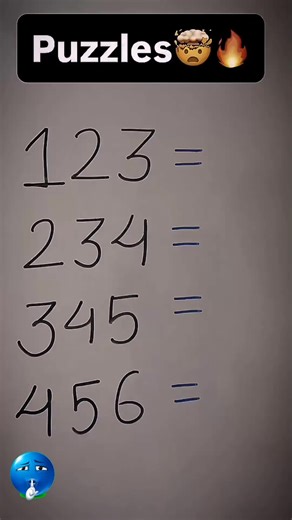 Puzzles🤯🔥
123 =
234 =
345 =
456 =